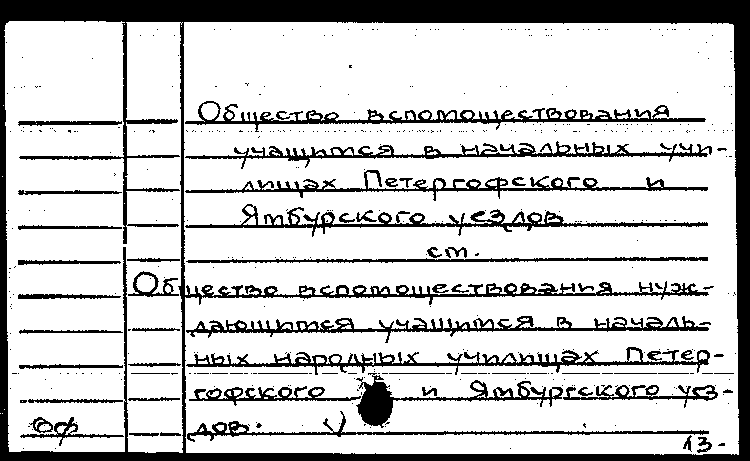 Общество вспомоществования
учащимся в начальных учи-
лищах Петергофского и
Ямбурского уездов
ст.
Общество вспомоществования нуж-
дающимся учащимся в началь-
ных народных училищах Петер-
гофского и Ямбургского уез-
оф дов. V
13-